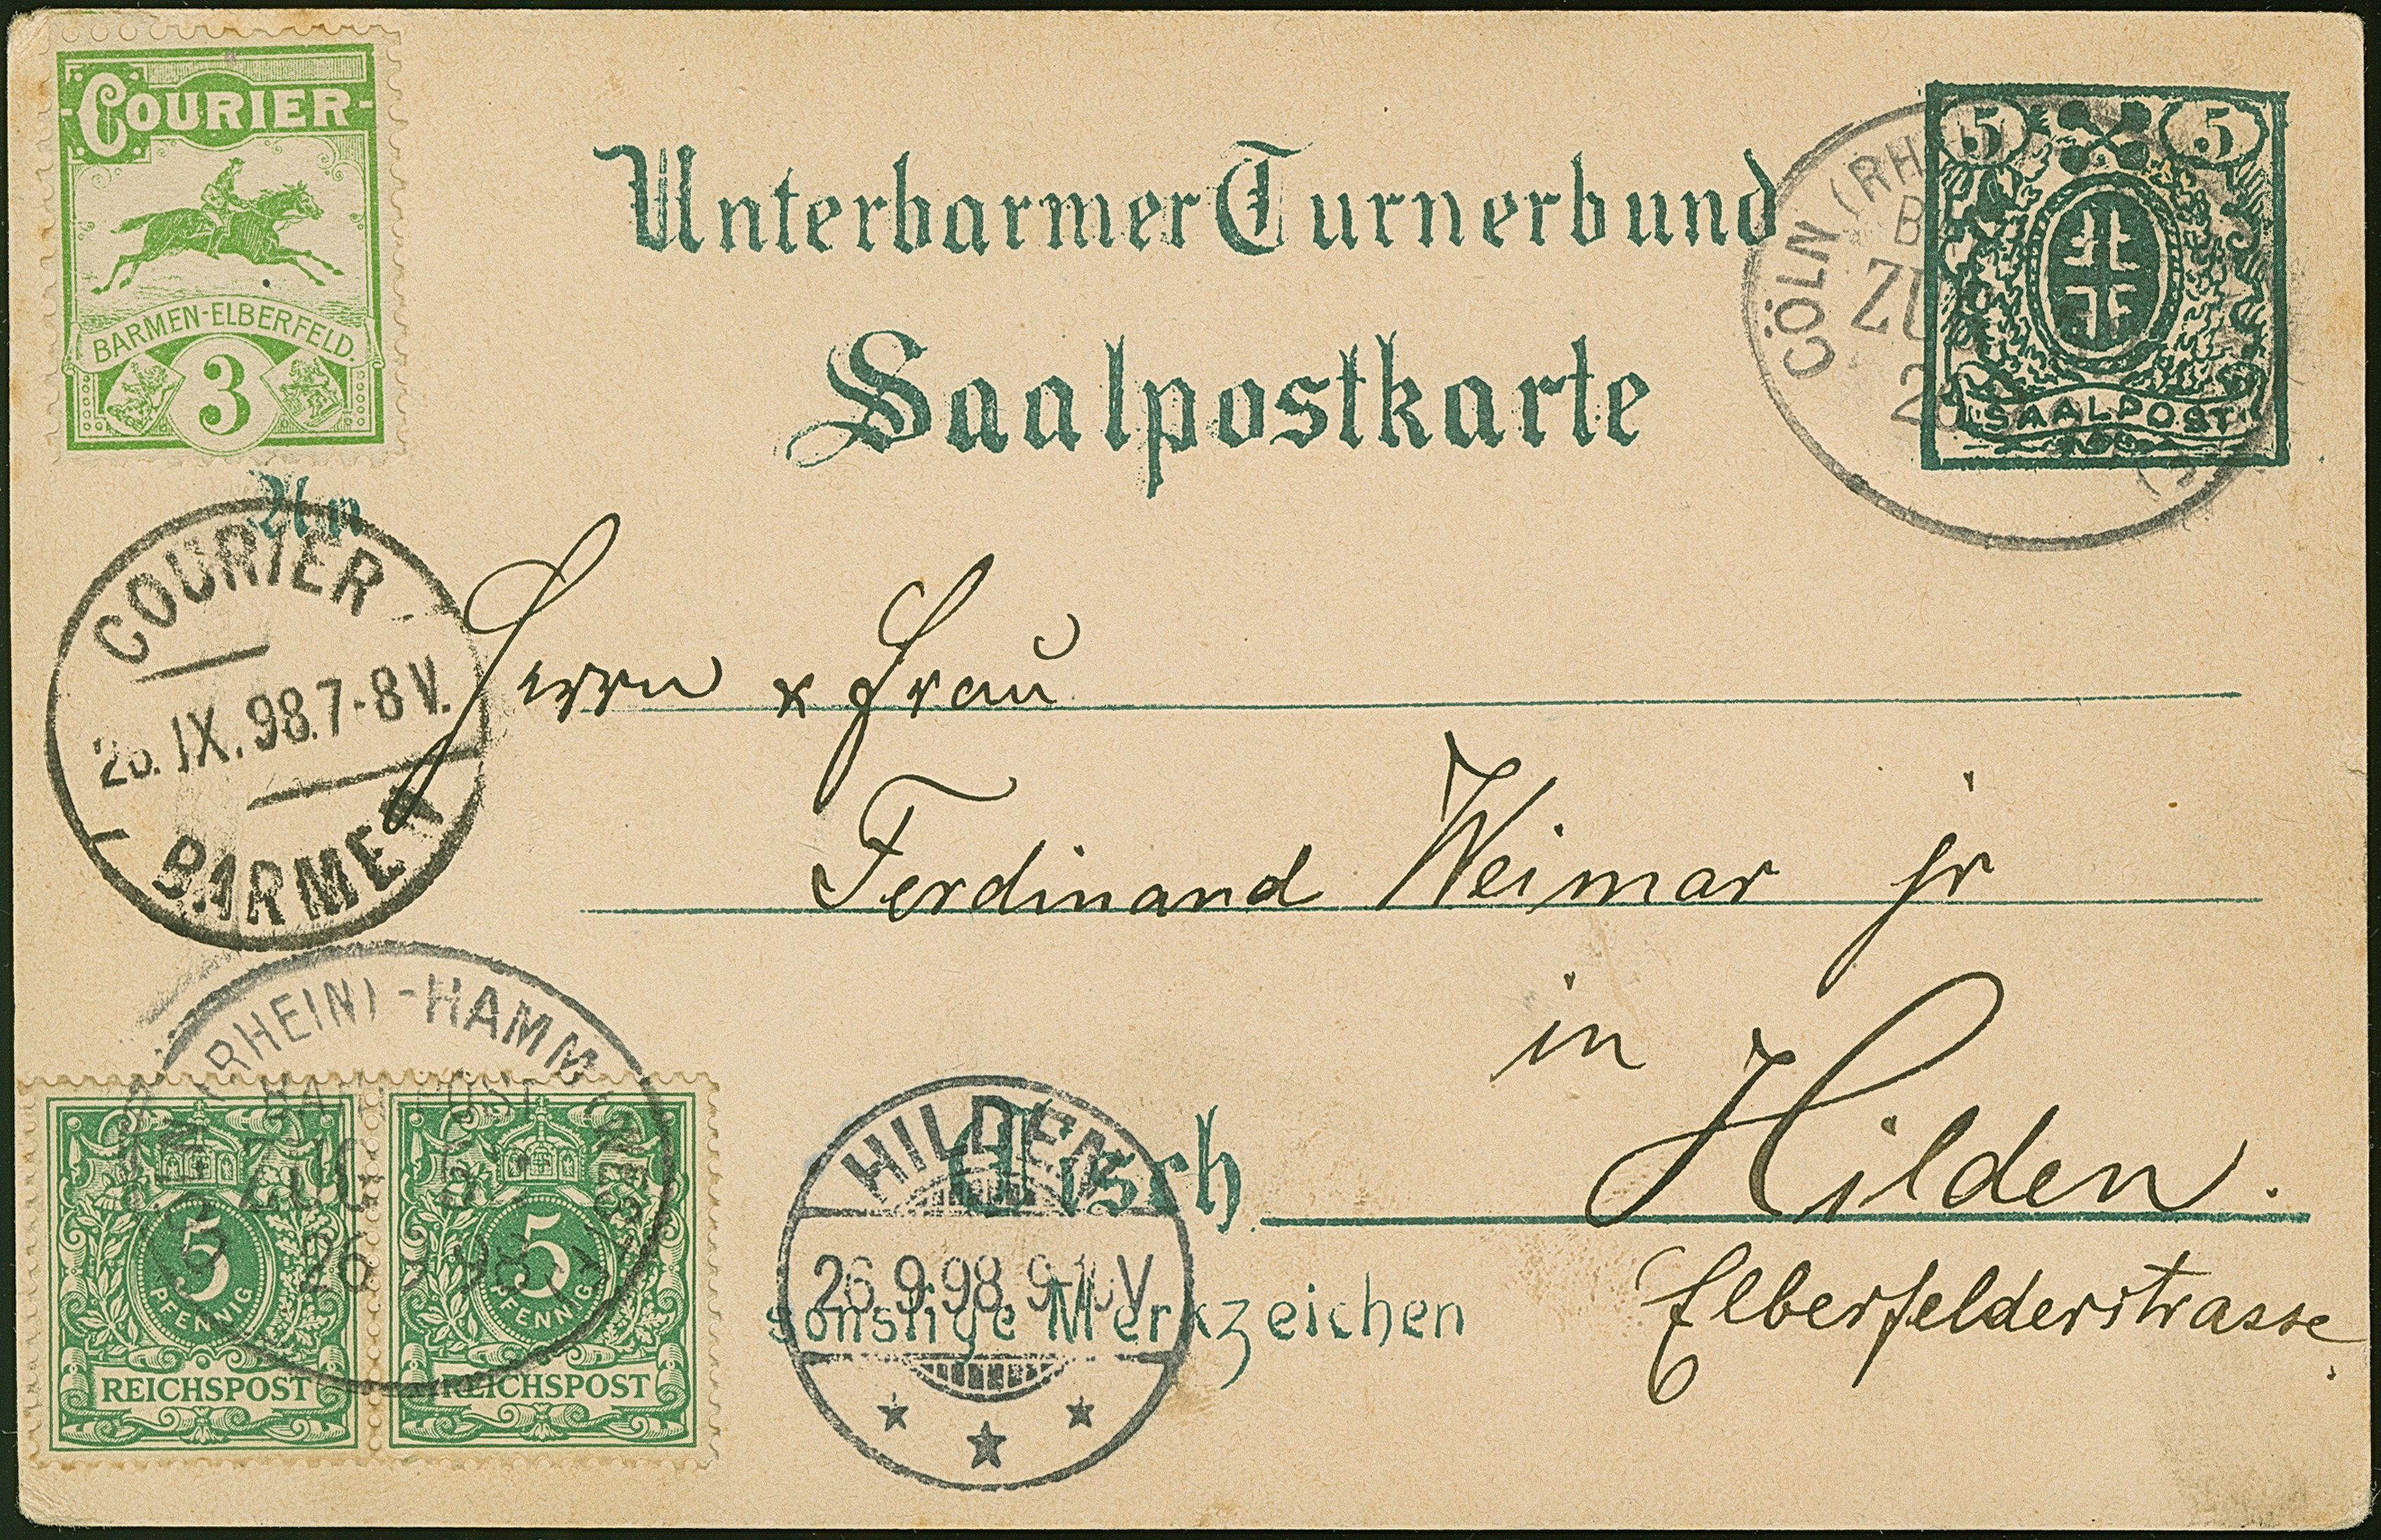 COURIER
BARMEN-ELBERFELD.
3
Unterbarmer Turnerbund
Saalpostkarte
5 5
SAALPOST
CÖLN (RH
ZU
An
COURIER
IX.98.7-8V.
BARMEN
Herrn & Frau
Ferdinand Weimar jr
in
Hilden.
Elberfelderstrasse.
Tisch
sonstige Merkzeichen
(RHEIN)-HAMM
ZUG
26 9 98
5 PFENNIG
REICHSPOST
5 PFENNIG
REICHSPOST
HILDEN
26.9.98.9-10V.